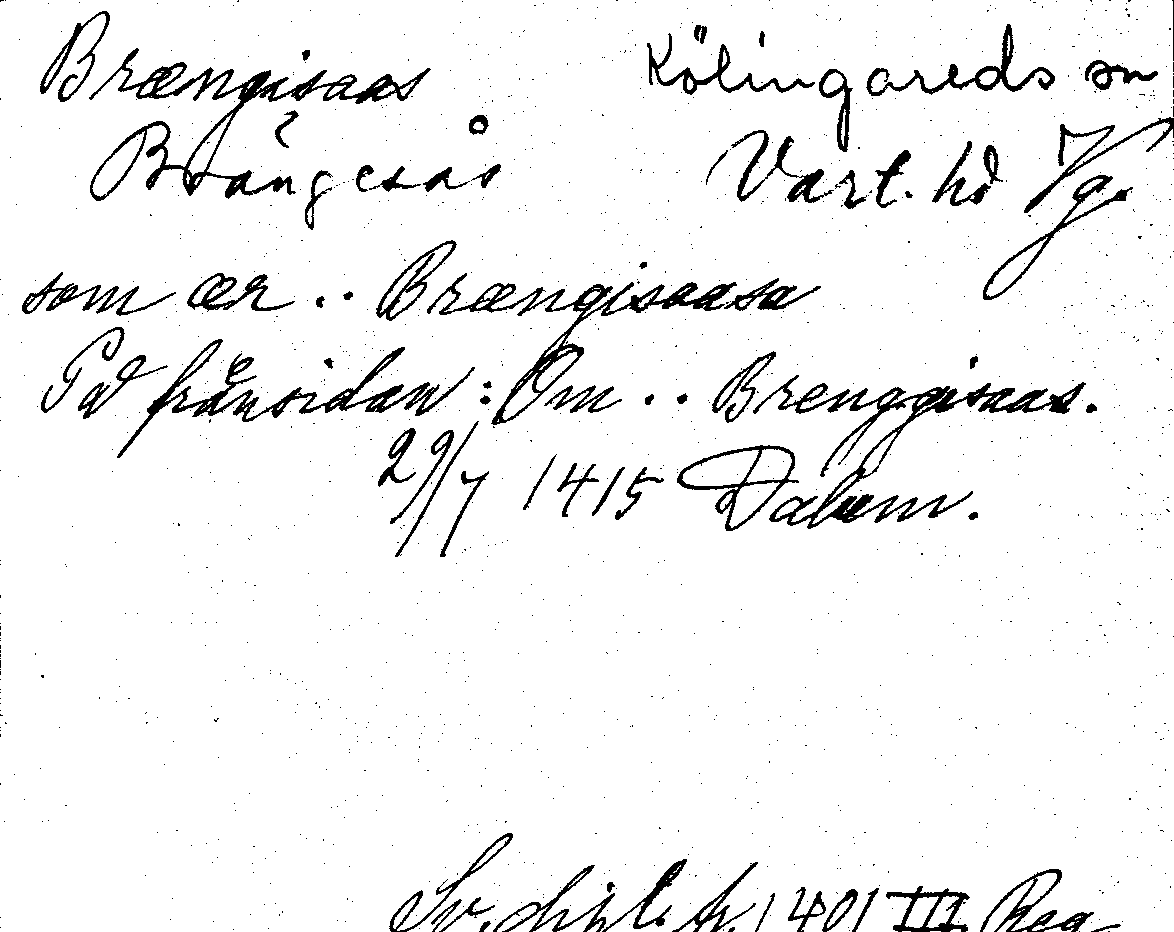 Brængisaas Kölingareds sn
Brängesås Vart. hd Vg.
som ær .. Brængisaasa
På frånsidan: Om .. Brenggisaas.
29/7 1415 Dalem.
Sv. dipl. fr. 1401 III Reg